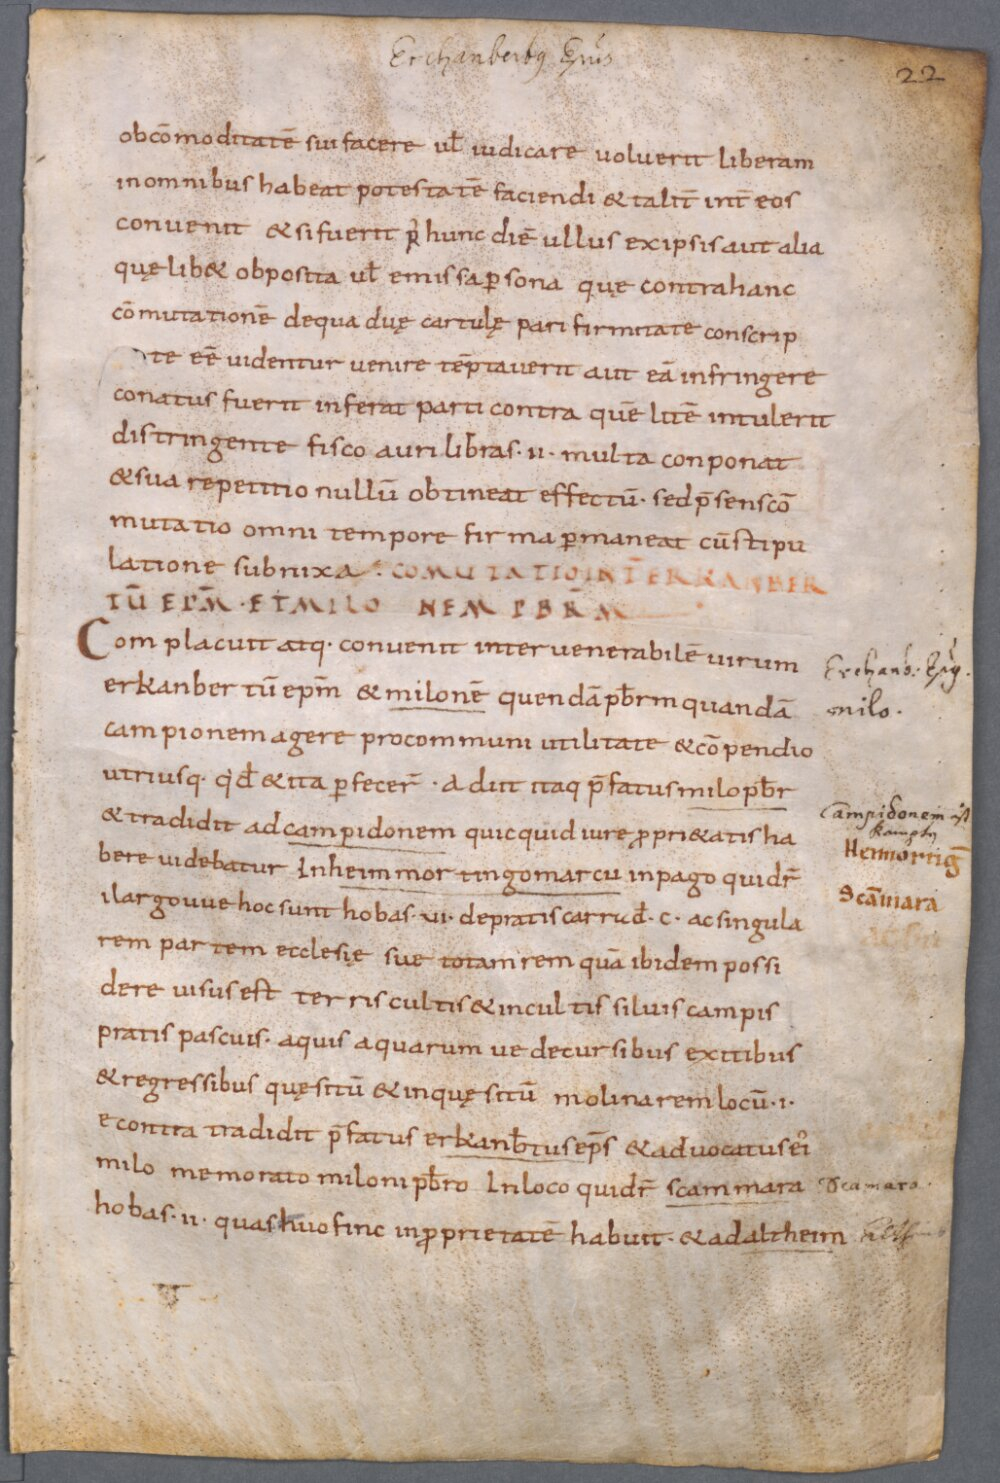 Erchanbertq Epūs
22
obcōmoditatē sui facere ul̄ iudicare voluerit liberam
inomnibus habeat potestatē faciendi & talit̄ int̄ eos
convenit & si fuerit p̄ hunc diē ullus exipsis aut alia
quę lib& obposita ul̄ emissa ꝑsona quę contra hanc
cōmutationē de qua duę cartulę pari firmitate conscrip
te eē videntur venire tēptaverit aut eā infringere
conatus fuerit inferat parti contra quē litē intulerit
distringente fisco auri libras·ii· multa conponat
& sua repetitio nullū obtineat effectū· sed p̄sens cō
mutatio omni tempore firma ꝑmaneat cū stipu
latione subnixa· COMUTATIO INT̄ ERKANBER
TŪ EPM̄· ET MILO NEM PBR̄M
Com placuit atq· convenit inter venerabilē virum
erkanber tū epm̄ & milonē quendā pb̄rm quandā
campionem agere procommuni utilitate & cōpendio
utriusq· qd̄ & ita ꝑfecer̄· Adiit itaq p̄fatus milo pb̄r
& tradidit ad campidonem quicquid iure ꝓpri&atis ha
bere videbatur In heimmortingomarcu inpago quidr̄
ilargouue hoc sunt hobas·vi· depratis carrad̄·c· ac singula
rem partem ecclesię sue totam rem quā ibidem possi
dere visus est terris cultis & incultis silvis campis
pratis pascuis· aquis aquarum ve decursibus exitibus
& regressibus quęsitū & inquęsitū molinarem locū·i·
econtra tradidit p̄fatus erkanb̄tus ep̄s & advocatus ei
milo memorato miloni pb̄ro In loco quidr̄ scammara
hobas·ii· quas huofinc inꝓprietatē habuit· & ad altheim
Erchanb: Epūs.
milo.
Campidonem ist
kempten
Heimortīg
Scāmara
Scamara.